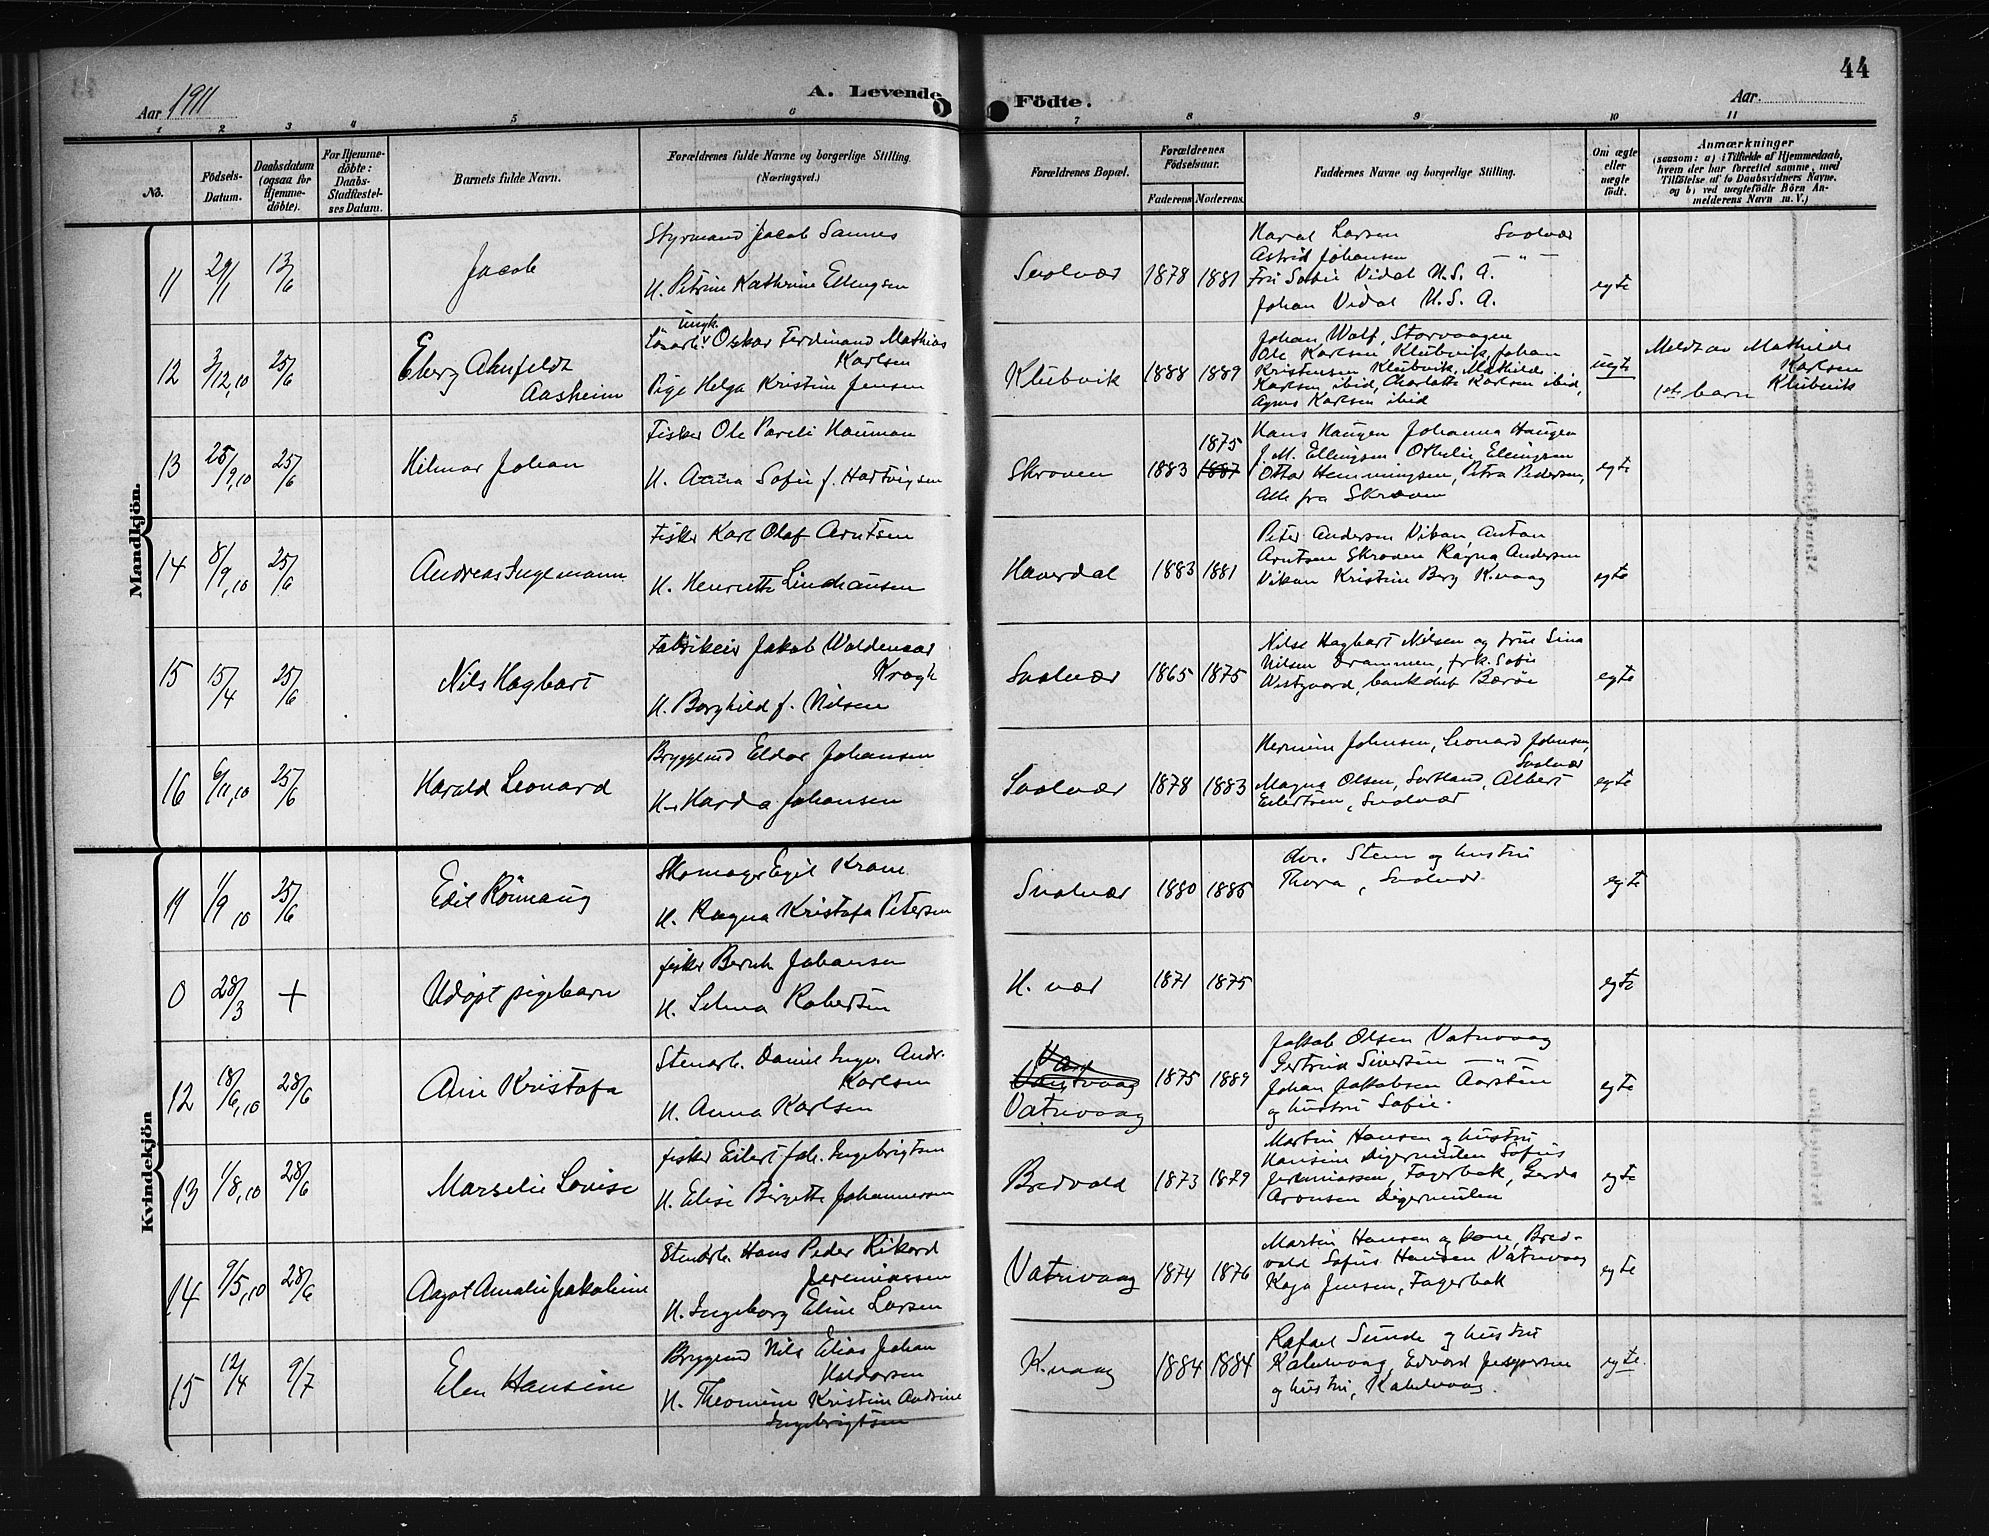 44
Aar 1911
A. Levende Födte.
Aar
1 2 3 4 5 6 7 8 9 10 11
No.
Födsels-Datum.
Daabsdatum (ogsaa for Hjemme-döbte).
For Hjemme-döbte: Daabs-Stadfæstel-ses Datum.
Barnets fulde Navn.
Forældrenes fulde Navne og borgerlige Stilling. (Næringsvei.)
Forældrenes Bopæl.
Forældrenes Födselsaar.
Faderens Moderens
Faddernes Navne og borgerlige Stilling.
Om ægte eller uægte födt.
Anmærkninger
(saasom: a) i Tilfælde af Hjemmedaab,
hvem der har forrettet samme, med
Tilföielse af to Daabsvidners Navne,
og b) ved uægtefödte Börn An-
melderens Navn m. V.)
Mandkjön.
11 29/1 13/6 Jacob
Styrmand Jacob Sannes
H. Petrine Kathrine Ellingsen
Svolvær 1878 1881
Haral Larsen Svolvær
Astrid Johansen — " —
Fru Sofie Vidal U.S.A.
Johan Vidal U.S.A.
egte
12 3/12,10 25/6
Aasheim
ungk.
Løsarb. Oskar Ferdinand Mathias
Karlsen
Pige Helga Kristine Jensen
Klubvik 1888 1889
Johan Wolf, Storvaagen
Ole Karlsen, Klubvik, Johan
Kristensen Klubvik, Mathilde
Karlsen ibid, Charlotte Karlsen ibid,
Agnes Karlsen ibid
uegte
Meldt av Mathilde
Karlsen
Klubvik
1ste barn
13 25/9,10 25/6 Hilmar Johan
Fisker Ole Pareli Hauman
H. Anna Sofie f. Hartvigsen
Skroven 1883 1875 1887
Hans Haugen Johanna Haugen
J. M. Ellingsen Othelie Ellingsen
Ottar Hemmingsen, Petra Pedersen,
Alle fra Skroven
egte
14 8/9,10 25/6 Andreas Ingemann
Fisker Karl Olaf Arntsen
H. Henriette Lindhansen
Haverdal 1883 1881
Peter Andersen Vikan, Anton
Arntsen Skroven Ragna Andersen
Vikan Kristine Berg K.vaag
egte
15 15/4 25/6 Nils Hagbart
Fabrikeier Jakob Waldemar
Krogh
H. Borghild f. Nilsen
Svolvær 1865 1875
Nils Hagbart Nilsen og frue Sina
Nilsen Drammen, frk. Sofie
Westgaard, bankchef Bærøe
egte
16 6/11,10 25/6 Harald Leonard
Bryggemd Eldor Johansen
H. Harda Johansen
Svolvær 1878 1883
Hermine Johnsen, Leonard Johnsen,
Svolvær
Magna Olsen, Sortland, Albert
Eilertsen, Svolvær
egte
Kvindekjön
11 1/9 10 25/6 Edit Rönnaug
Skomager Egil Krane
H. Ragna Kristofa Petersen
Svolvær 1880 1885
Stene og hustru
Thora, Svolvær
egte
0 28/3 + Udöpt pigebarn
fisker Bernh Johansen
H. Selma Robertsen
H. vær 1871 1875
egte
12 18/6,10 28/6 Kristofa
Stenarb. Daniel Ingv. Andr.
Karlsen
H. Anna Karlsen
Vatnvaag 1875 1889
Jakob Olsen Vatnvaag
Gertrud Sivertsen — " —
Johan Jakobsen Aarsten
og hustru Sofie.
egte
13 1/8,10 28/6 Marselie Lovise
fisker Eilert Joh. Ingebrigtsen
H. Elise Birgitte Johannessen
Bredvold 1873 1879
Martin Hansen og hustru
Hansine Digermulen Sofus
Jeremiassen, Fagerbak, Gerda
Aronsen Digermulen
egte
14 9/5,10 28/6 Aagot Amalie Jakobine
Stenarb. Hans Peder Rikard
Jeremiassen
H. Ingeborg Eline Larsen
Vatnvaag 1874 1876
Martin Hansen og kone, Bred-
vold Sofus Hansen Vatnvaag
Kaja Jensen, Fagerbak
egte
15 12/4 9/7 Elen Hansine
Bryggemd Nils Elias Johan
Haldorsen
H. Theomine Kristine Andrine
Ingebrigtsen
K.vaag 1884 1884
Rafael Sunde og hustru
Kabelvaag, Edvard Jespersen
og hustru, Kabelvaag.
egte.